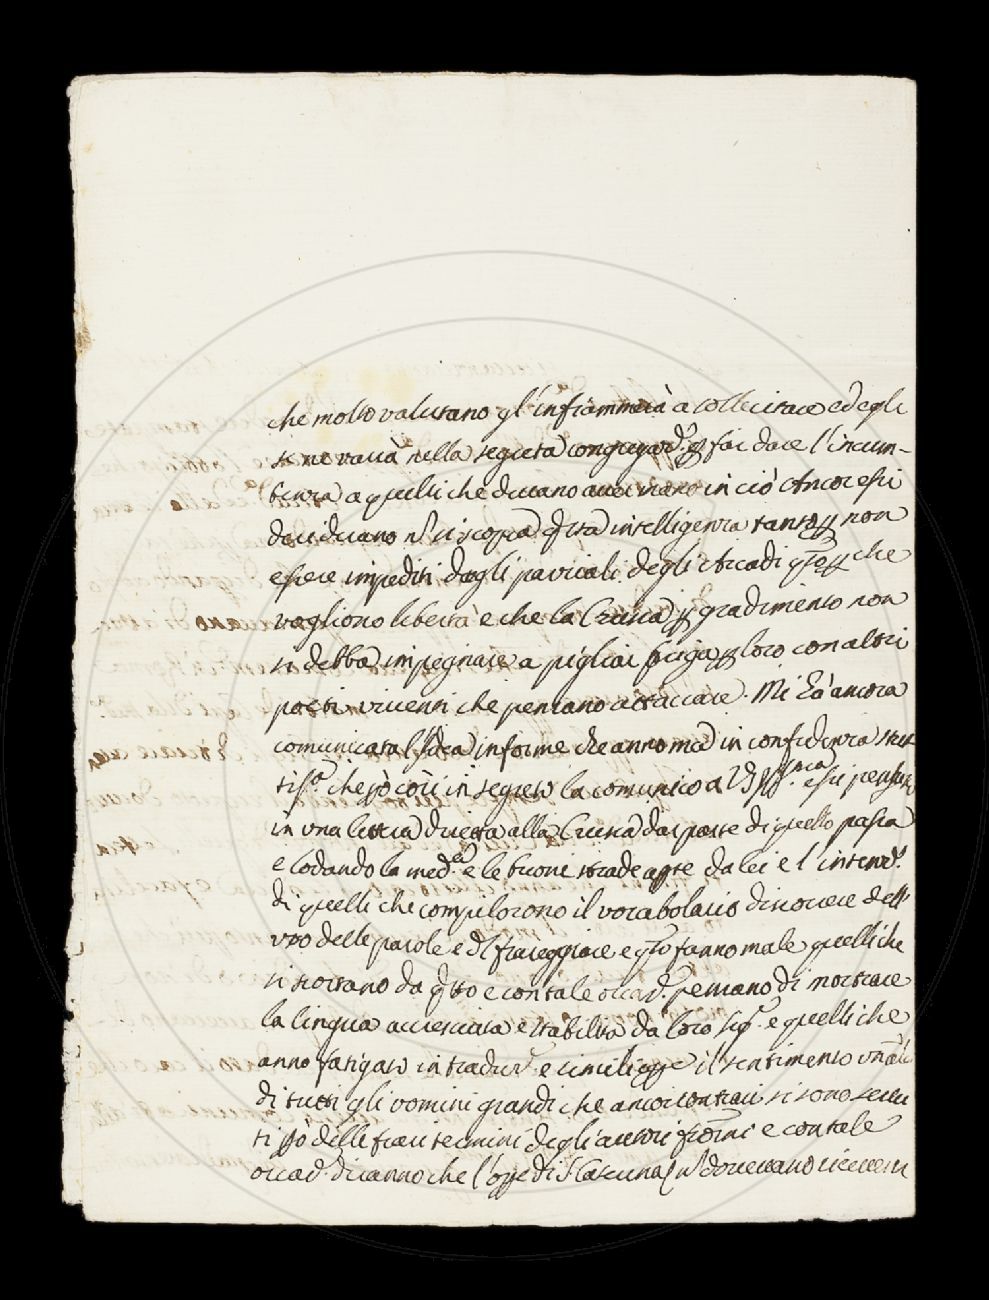 che molto valutano gl'infiammerà a sollecitare ed egli
si troverà nella segreta congregaz.e p far dare l'incum-
benza a quelli che devano auuenirano in ciò Ancor essi
desiderano si scopra q.sta intelligenza tanto p non
essere impediti dagli parziali degli Arcadi q.to p che
vogliono libertà e che la Crusca p gradimento non
si debba impegnare a pigliar briga p loro con altri
poeti viventi che pensano attaccare. Mi hà ancora
comunicata l'idea informe che anno ma in confidenza
tis.a che però così in segreto la comunico a VS Ill.ma essi pensano
in una lettera diretta alla Crusca dar parte di quello passa
e lodando la med.a e le buone strade apte da lei e l'intenz.e
di quelli che compilorono il vocabolario discorrere dell'
uso delle parole e del fraseggiare e q.to fanno male quelli che
si scostano da q.sto e con tale occas.e pensano di mostrare
la lingua accresciuta e stabilita da loro Sig.ri e quelli che
anno fatigato in tradur.e e il sentimento
di tutti gli uomini grandi che ancor contrari si sono serui
ti però delle frasi termini degli autori fior.ni e con tale
occas.e diranno che l'opre di S Caterina doueuano